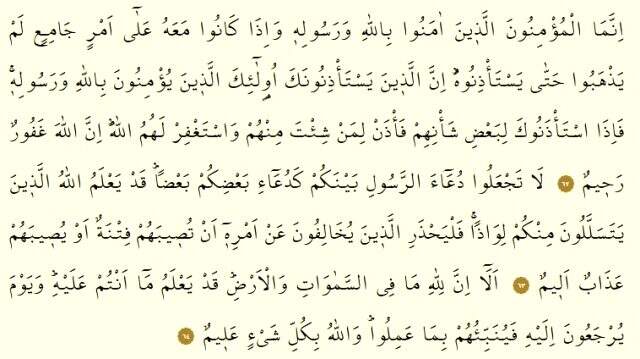 اِنَّمَا الْمُؤْمِنُونَ الَّذ۪ينَ اٰمَنُوا بِاللّٰهِ وَرَسُولِه۪ وَاِذَا كَانُوا مَعَهُ عَلٰٓى اَمْرٍ جَامِعٍ لَمْ
يَذْهَبُوا حَتّٰى يَسْتَأْذِنُوهُۜ اِنَّ الَّذ۪ينَ يَسْتَأْذِنُونَكَ اُو۬لٰٓئِكَ الَّذ۪ينَ يُؤْمِنُونَ بِاللّٰهِ وَرَسُولِه۪ۚ
فَاِذَا اسْتَأْذَنُوكَ لِبَعْضِ شَأْنِهِمْ فَأْذَنْ لِمَنْ شِئْتَ مِنْهُمْ وَاسْتَغْفِرْ لَهُمُ اللّٰهَۜ اِنَّ اللّٰهَ غَفُورٌ
رَح۪يمٌ ﴿٦٢﴾ لَا تَجْعَلُوا دُعَٓاءَ الرَّسُولِ بَيْنَكُمْ كَدُعَٓاءِ بَعْضِكُمْ بَعْضًاۜ قَدْ يَعْلَمُ اللّٰهُ الَّذ۪ينَ
يَتَسَلَّلُونَ مِنْكُمْ لِوَاذًاۚ فَلْيَحْذَرِ الَّذ۪ينَ يُخَالِفُونَ عَنْ اَمْرِه۪ٓ اَنْ تُص۪يبَهُمْ فِتْنَةٌ اَوْ يُص۪يبَهُمْ
عَذَابٌ اَل۪يمٌ ﴿٦٣﴾ اَلَٓا اِنَّ لِلّٰهِ مَا فِي السَّمٰوَاتِ وَالْاَرْضِۜ قَدْ يَعْلَمُ مَٓا اَنْتُمْ عَلَيْهِۜ وَيَوْمَ
يُرْجَعُونَ اِلَيْهِ فَيُنَبِّئُهُمْ بِمَا عَمِلُواۜ وَاللّٰهُ بِكُلِّ شَيْءٍ عَل۪يمٌ ﴿٦٤﴾